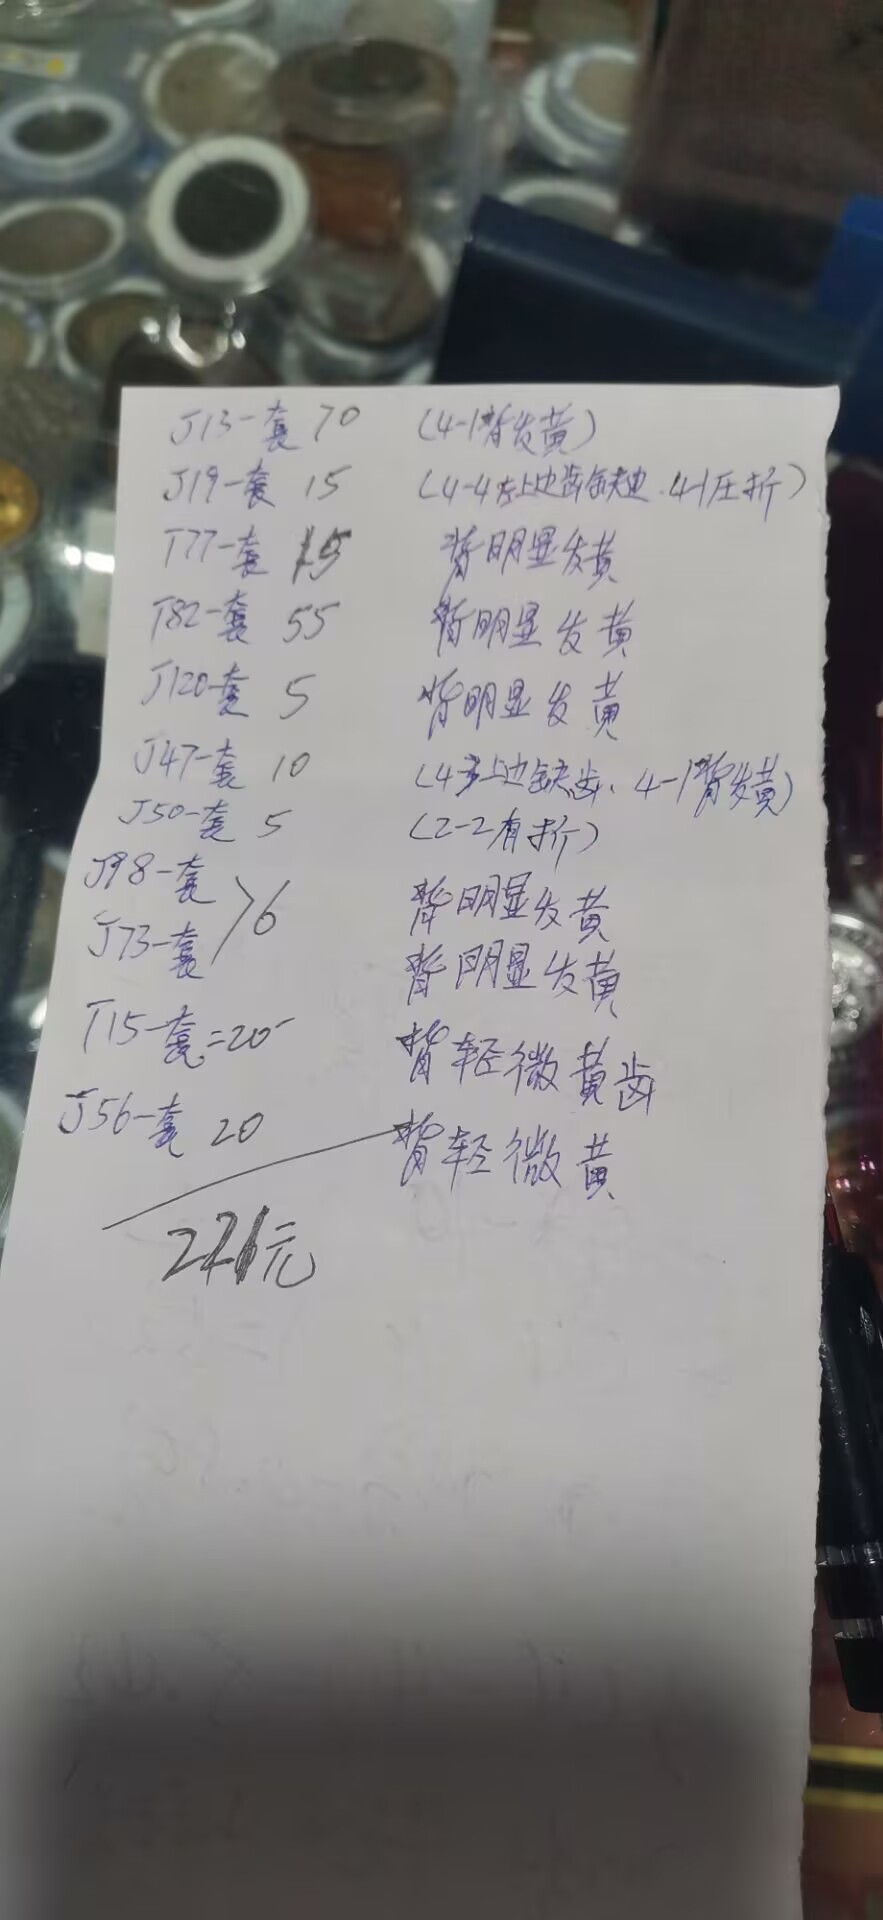 J13一套 70 (4-1背发黄)
J19一套 15 (4-4左上边齿缺边.4-1压折)
T77一套 15 背明显发黄
T82一套 55 背明显发黄
J120一套 5 背明显发黄
J47一套 10 (4-3上边缺齿、4-1背发黄)
J50一套 5 (2-2有折)
J98一套 背明显发黄
>6
J73一套 背明显发黄
T15一套=20 背轻微黄齿
J56一套 20 背轻微黄
221元